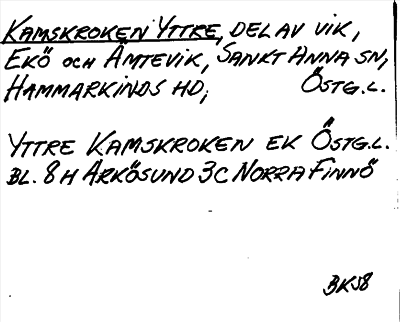 KAMSKROKEN YTTRE, DEL AV VIK,
EKÖ OCH ÄMTEVIK, SANKT ANNA SN,
HAMMARKINDS HD; ÖSTG.L.
YTTRE KAMSKROKEN EK ÖSTG.L.
BL. 8 H ARKÖSUND 3C NORRA FINNÖ
BK58